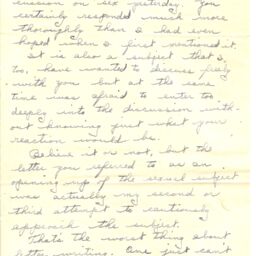 cussion on sex yesterday. You
certainly responded much more
thoroughly than I had even
hoped when I first mentioned it.
It is also a subject that I,
too, have wanted to discuss freely
with you but at the same
time was afraid to enter too
deeply into the discussion with-
out knowing just what your
reaction would be.
Believe it or not, but the
letter you referred to as an
opening up of the sexual subject
was actually my second or
third attempt to cautiously
approach the subject.
Thats the worst thing about
letter writing. One just can't